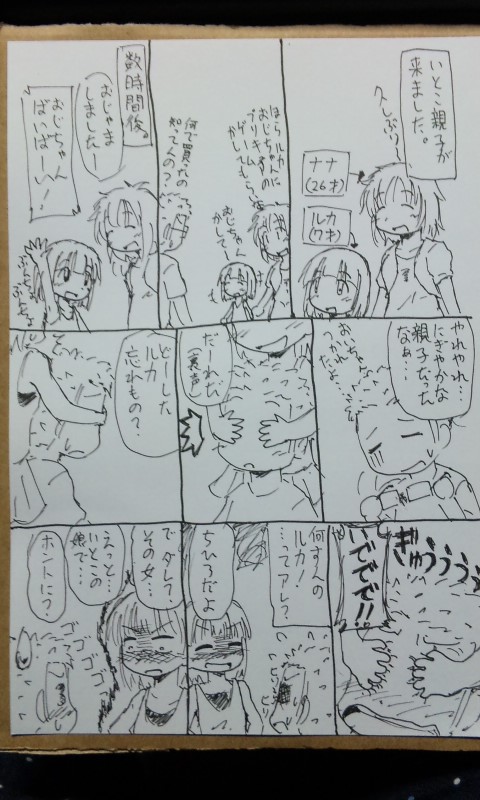 いとこ親子が
来ました。
久しぶり〜
ナナ
(26才)
ルカ
(7才)
ほらルカ
おじちゃんに
プリキュアの
ゲームも
かしてもらいな
おじちゃん
かしてー
何で買ったの
知ってんの?
数時間後。
おじゃま
しましたー
おじちゃん
ばいばーい!
ぶんぶん
やれやれ…
にぎやかな
親子だった
なぁ…
おじいちゃん
つかれ
たよ…
だーれだ
(裏声)
どーした
ルカ
忘れもの?
ぎゅううう
いででで!!
何すんの
ルカ!
…ってアレ?
ちひろだよ
で ダレ?
その女…
えっと…
いとこの
娘で…
ホントに?
ゴゴゴゴ